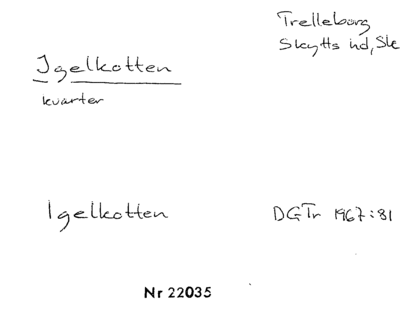 Trelleborg
Skytts hd, Ske
Igelkotten
kvarter
Igelkotten
DGTr 1967:81
Nr 22035